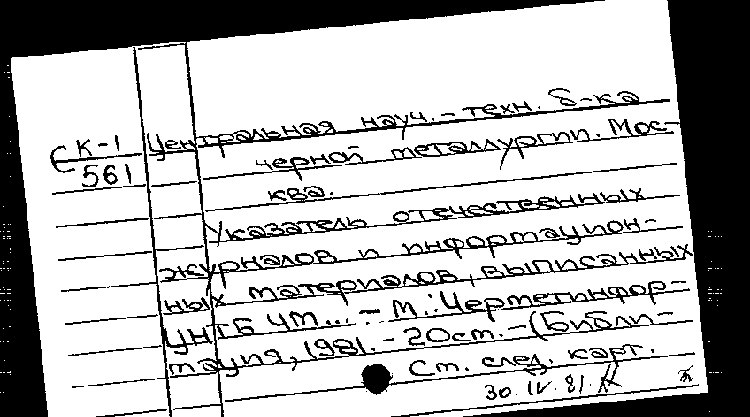 К-1
С 561
Центральная науч.-техн. б-ка
черной металлургии. Мос-
ква.
Указатель отечественных
журналов и информацион-
ных материалов, выписанных
ЦНТБ ЧМ... - М.: Черметинфор-
мация, 1981. - 20см. - (Библи-
См. след. карт.
30.IV.81.